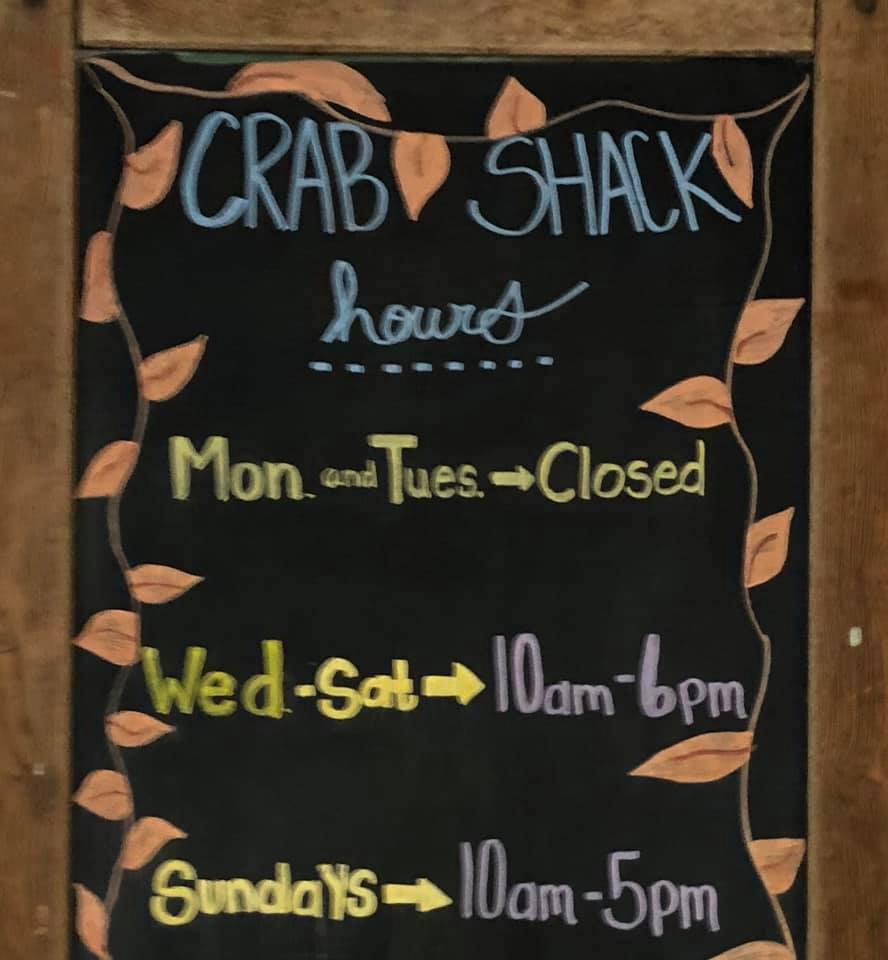 CRAB SHACK
hours
Mon. and Tues. → Closed
Wed.-Sat → 10am-6pm
Sundays → 10am-5pm